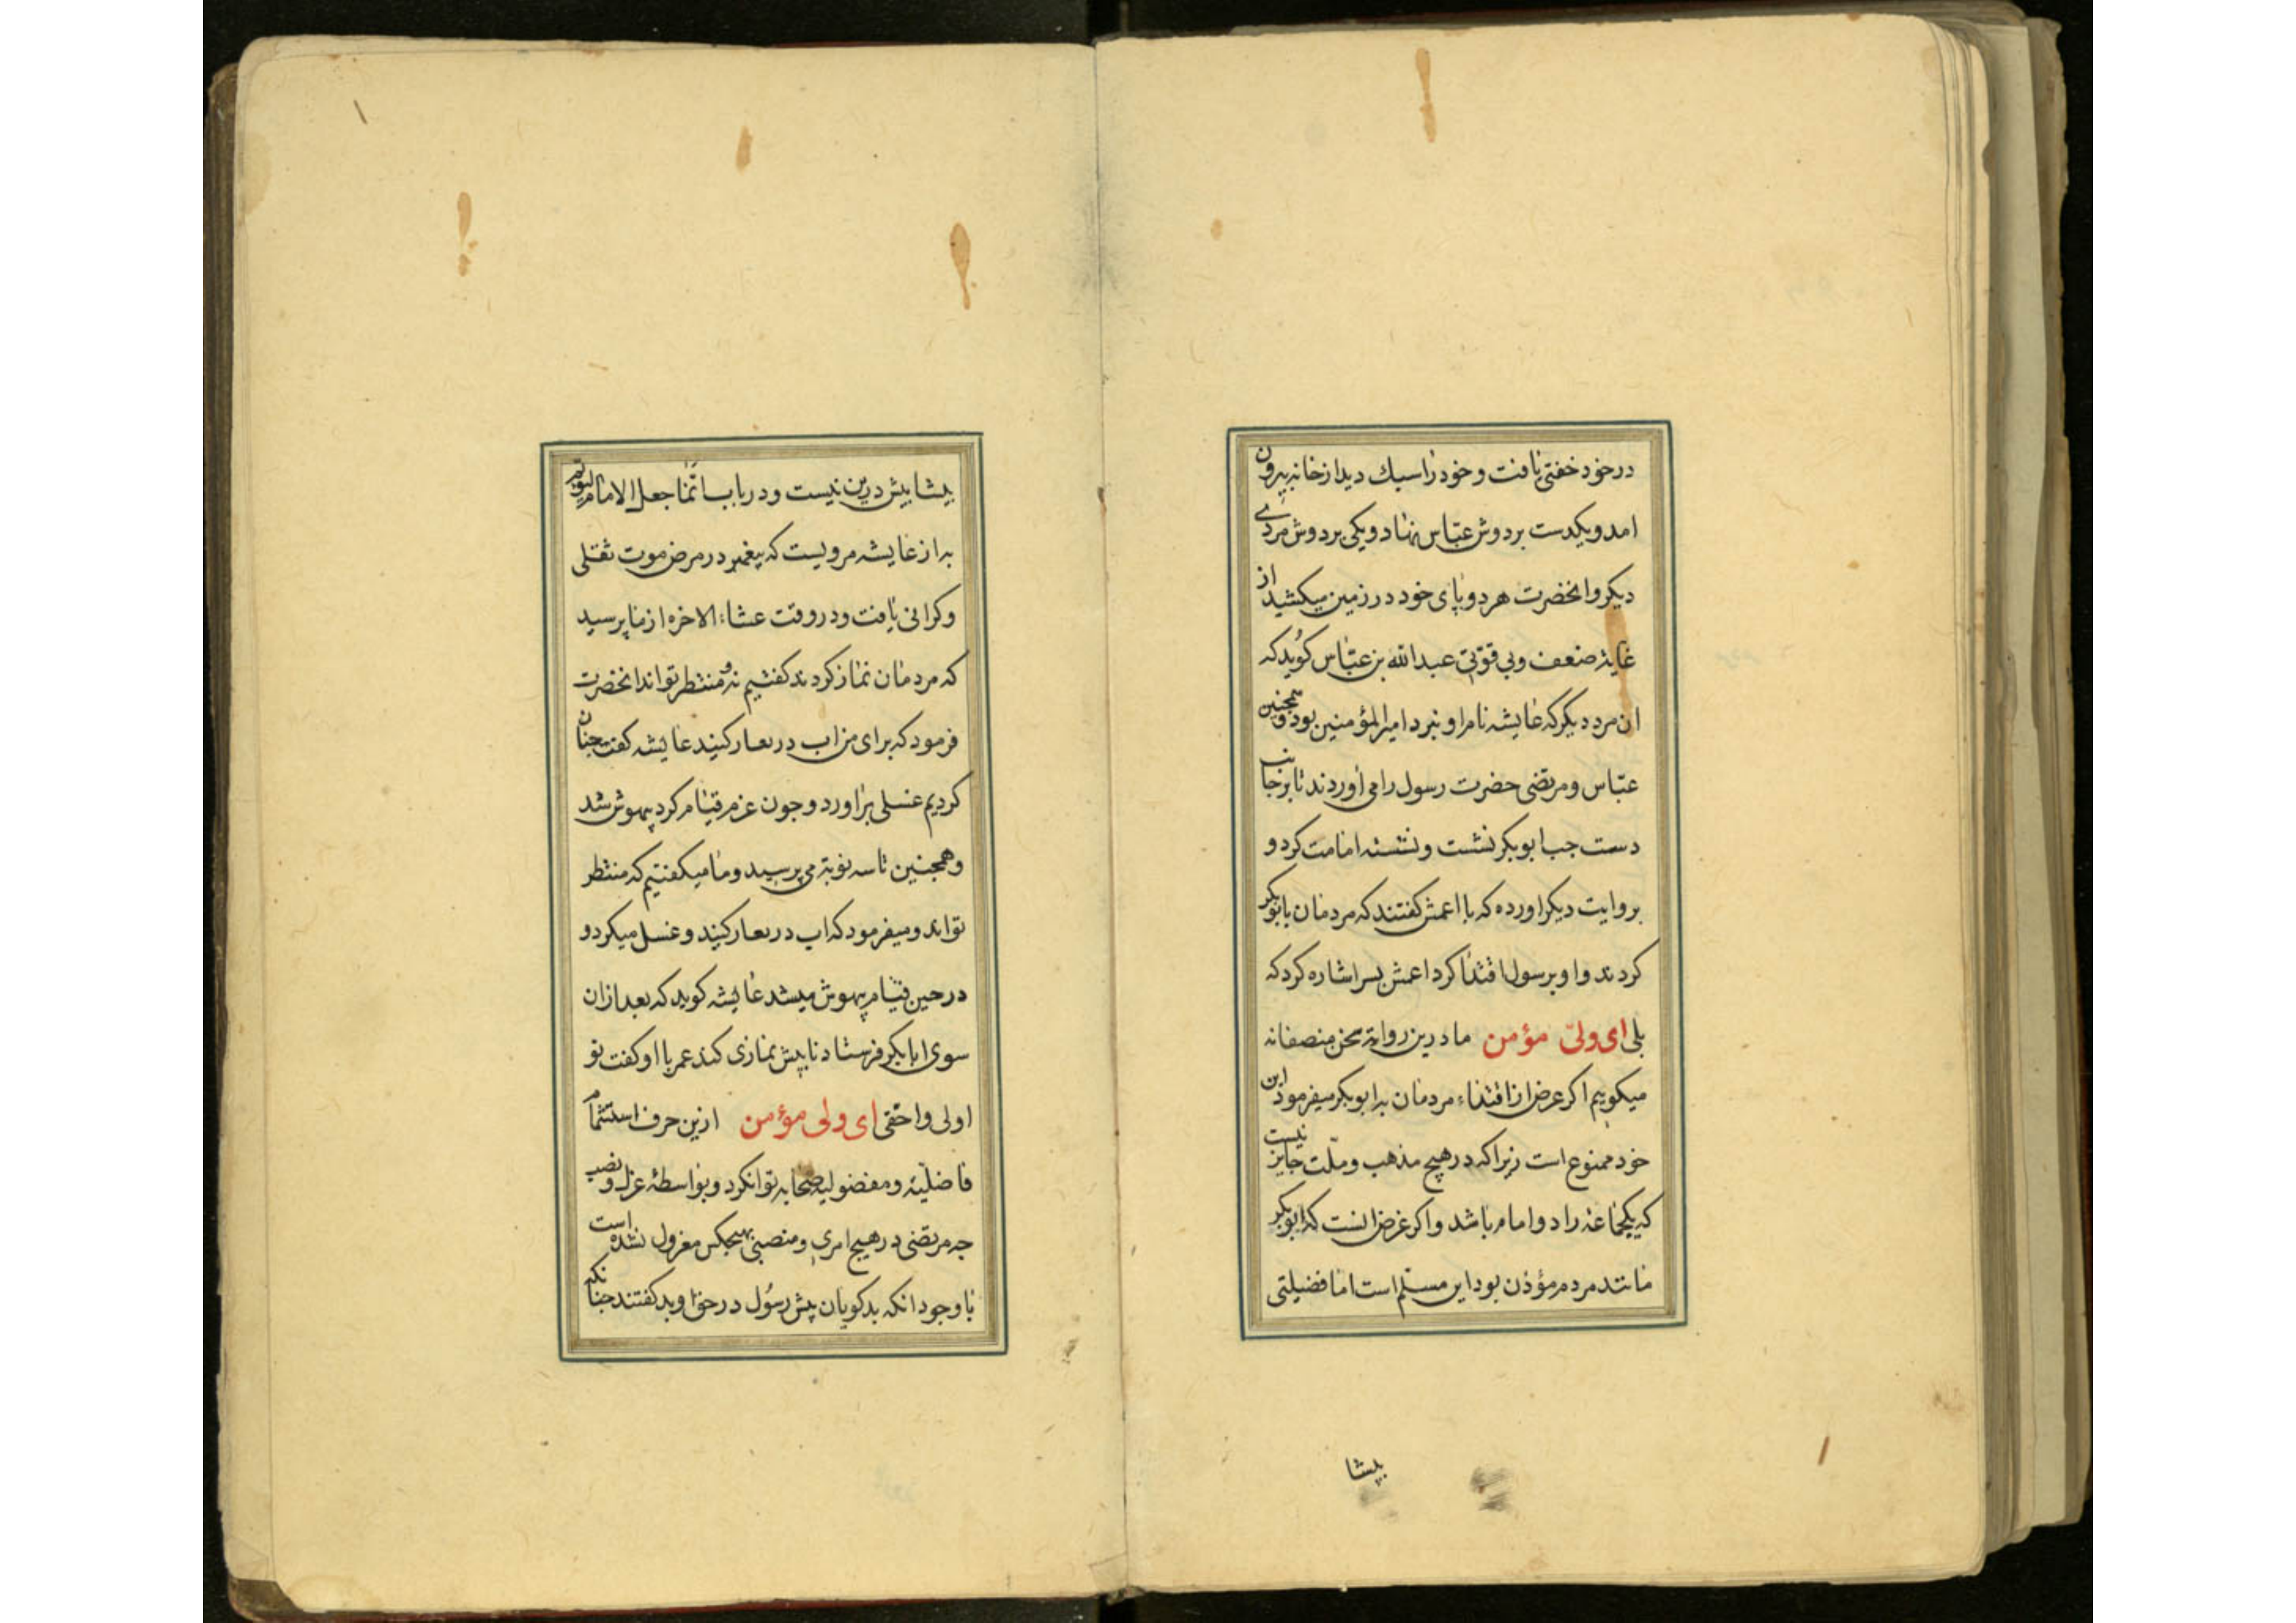 در خود خفتی یافت و خود را سبک دید از خانه بیرون
امد و یکدست بر دوش عبّاس نهاد و یکی بر دوش مردی
دیکر و انحضرت هر دو پای خود در زمین میکشید از
غایة ضعف و بی قوّتی عبدالله بن عبّاس کوید که
ان مرد دیکر که عایشه نام او نبرد امیرالمؤمنین بود و همچنین
عبّاس و مرتضی حضرت رسول را می اوردند تا بر جانب
دست جب ابوبکر نشست و نشسته امامت کرد و
بروایت دیکر اورده که با اعمش کفتند که مردمان بابوبکر
کردند و او برسول اقتدا کرد اعمش بسر اشاره کرد که
بلی ای ولیّ مؤمن ما درین روایة سخن منصفانه
میکوییم اکر غرض از اقتداء مردمان به ابوبکر میفرموذ این
خود ممنوع است زیرا که در هیچ مذهب و ملّت جایز نیست
که یکجماعة را دو امام باشد و اکر غرض انست که ابوبکر
مانند مردم مؤذن بود این مسلم است اما فضیلتی
پیشا
بیشا بیش درین نیست و در باب انّما جعل الامام لیؤتم
به از عایشه مرویست که پیغمبر در مرض موت ثقلی
و کرانی یافت و در وقت عشاء الاخره از ما پرسید
که مردمان نماز کردند کفتیم نه و منتظر تواند انحضرت
فرمود که برای من اب در تغار کنید عایشه کفت جنان
کردیم غسلی براورد و جون عزم قیام کرد بیهوش شد
و همجنین تا سه نوبة می پرسید و ما میکفتیم که منتظر
تواند و میفرمود که اب در تغار کنید و غسل میکرد و
در حین قیام بیهوش میشد عایشه کوید که بعد ازان
سوی ابابکر فرستاد تا پیش نمازی کند عمر با او کفت تو
اولی و احقی ای ولی مؤمن ازین حرف استشمام
فاضلیّة و مفضولیة صحابه توانکرد و بواسطهٔ عزل و نصب
جه مرتضی در هیچ امری و منصبی بهیجکس معزول نشده است
با وجود انکه بدکویان پیش رسُول در حق او بد کفتند جنانکه